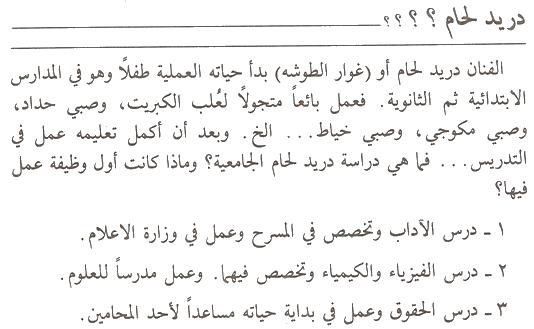 دريد لحام ؟ ؟ ؟ ؟
الفنان دريد لحام أو (غوار الطوشه) بدأ حياته العملية طفلاً وهو في المدارس
الابتدائية ثم الثانوية. فعمل بائعاً متجولاً لعُلب الكبريت، وصبي حداد،
وصبي مكوجي، وصبي خياط... الخ. وبعد أن أكمل تعليمه عمل في
التدريس... فما هي دراسة دريد لحام الجامعية؟ وماذا كانت أول وظيفة عمل
فيها؟
١ ـ درس الآداب وتخصص في المسرح وعمل في وزارة الاعلام.
٢ ـ درس الفيزياء والكيمياء وتخصص فيهما. وعمل مدرساً للعلوم.
٣ ـ درس الحقوق وعمل في بداية حياته مساعداً لأحد المحامين.